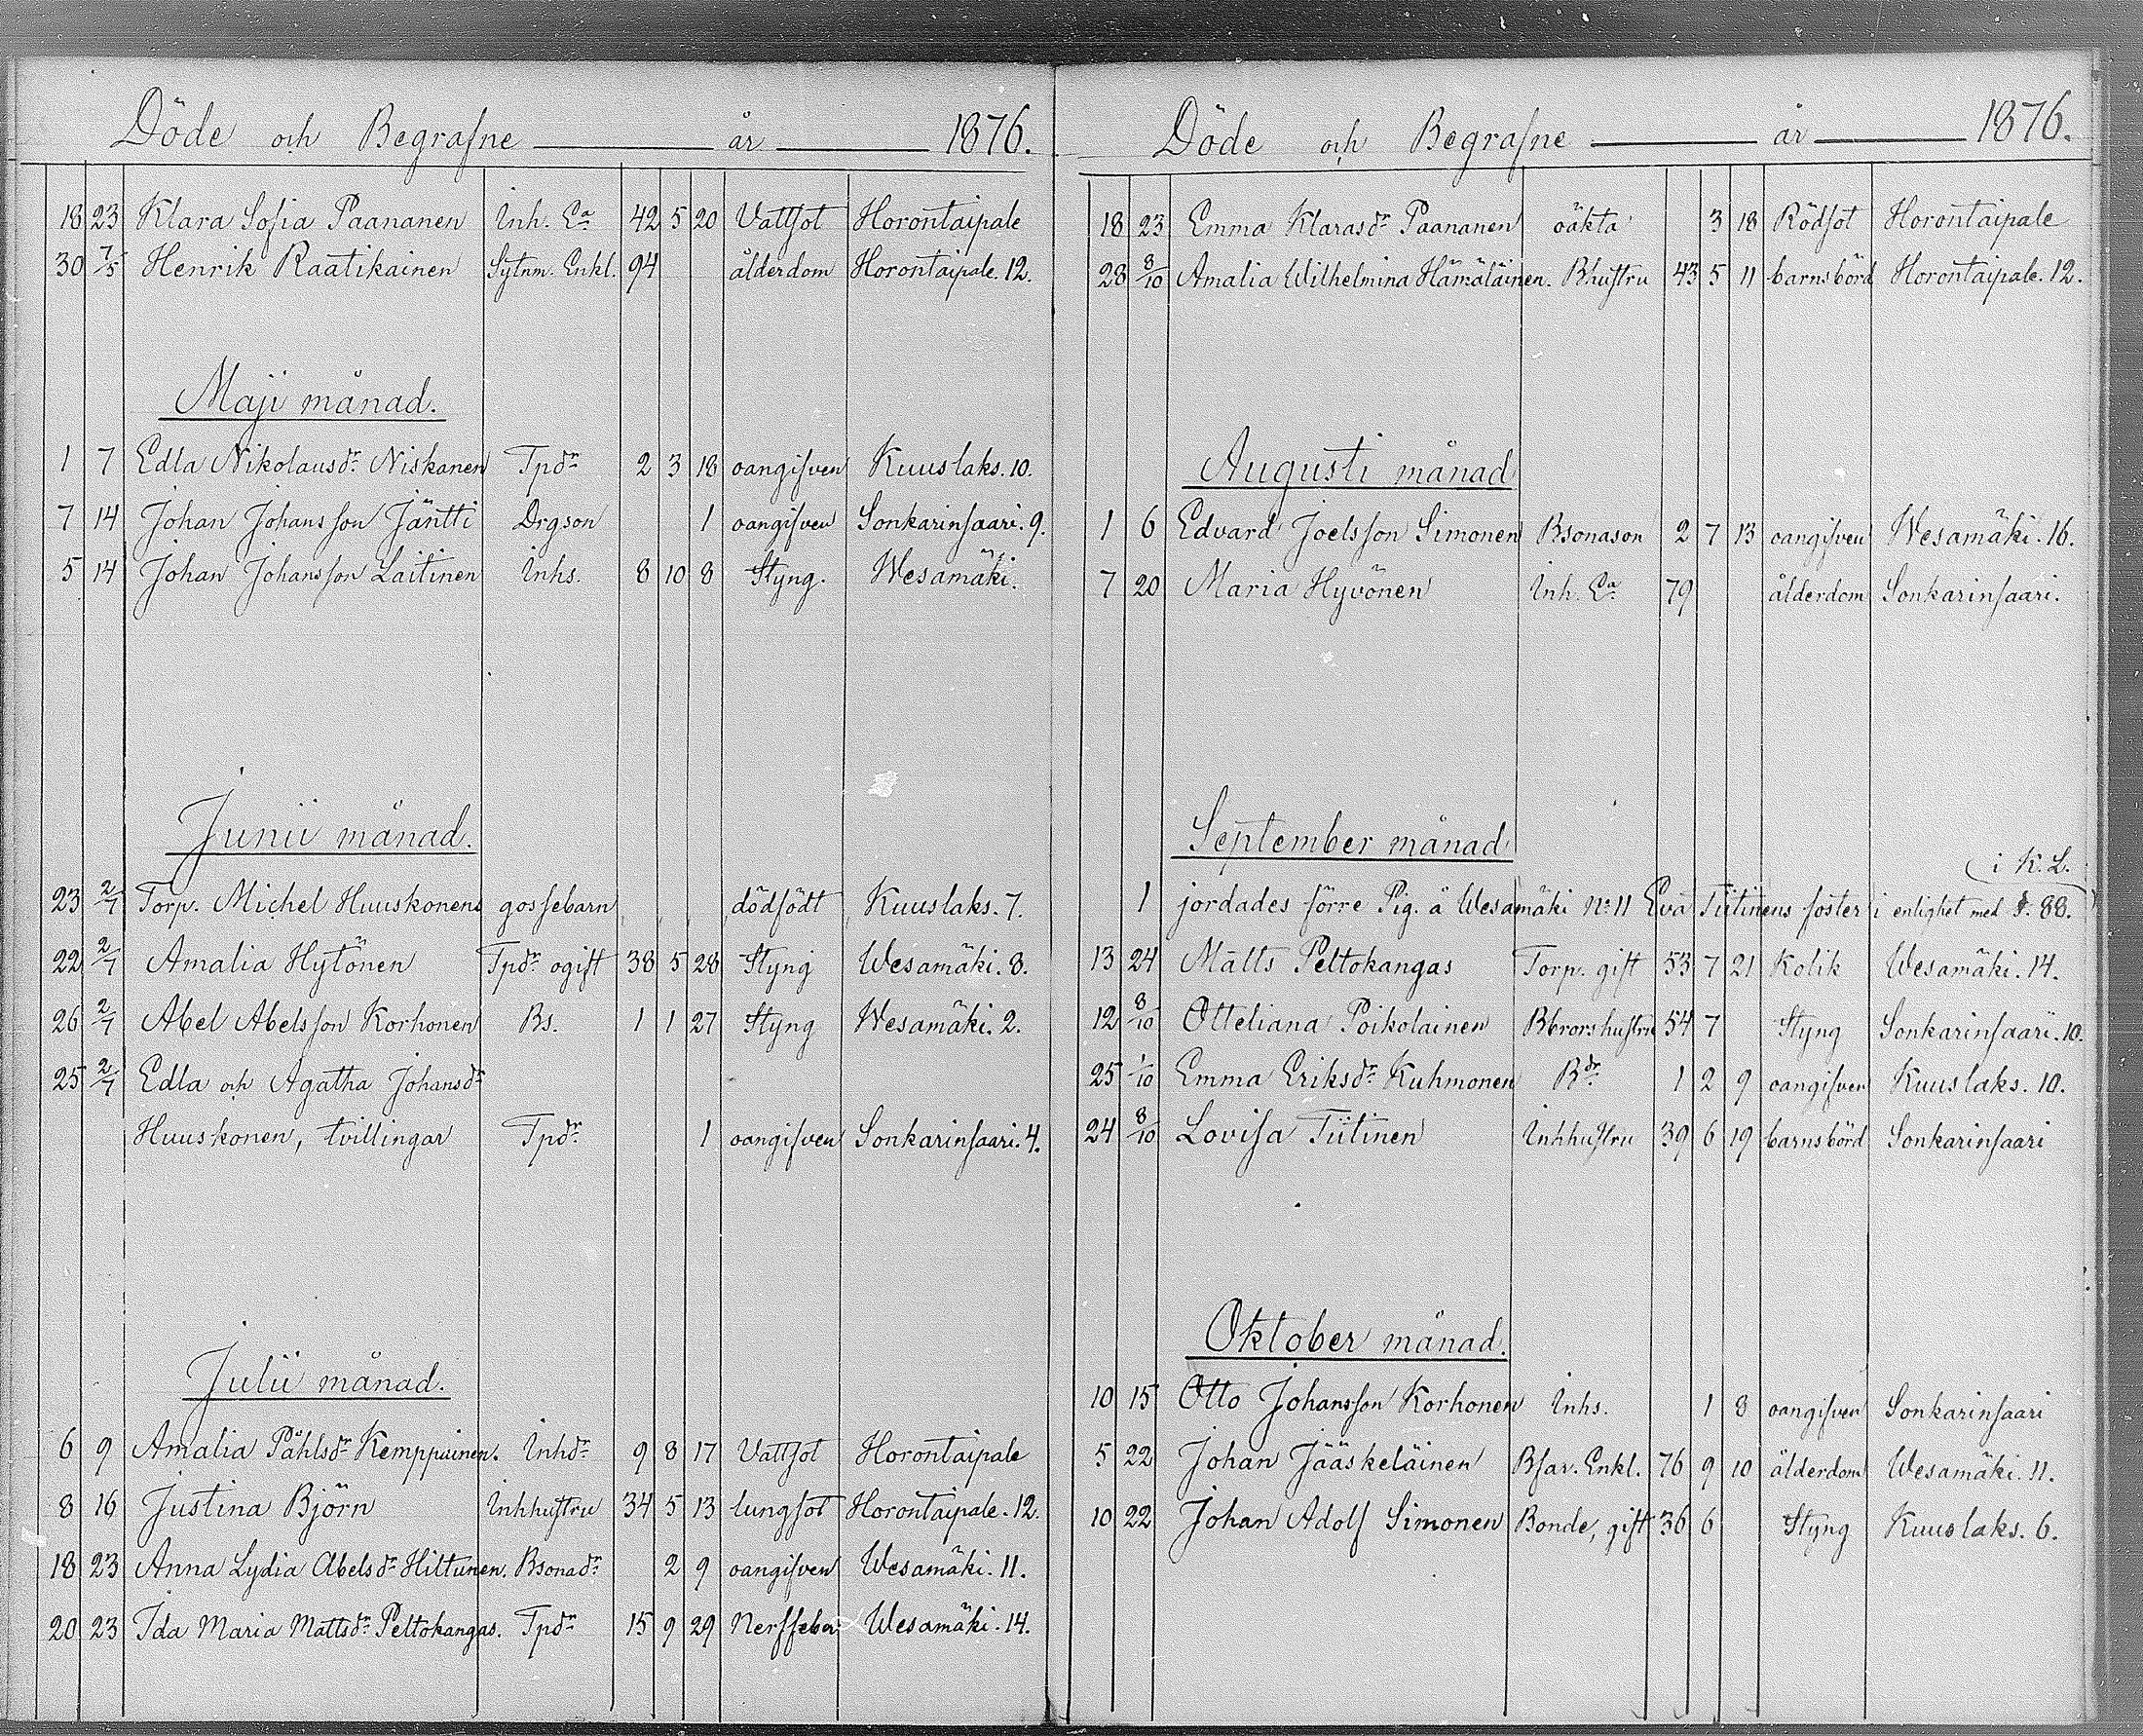 Döde och Begrafne år 1876.
18 23 Klara Sofia Paananen Inh. Ea 42 5 20 Vattsot Horontaipale
30 7/5 Henrik Raatikainen Sytnm. Enkl. 94 ålderdom Horontaipale. 12.
Maji månad.
1 7 Edla Nikolausdr Niskanen Tpdr 2 3 18 oangifven Kuuslaks. 10.
7 14 Johan Johansson Jäntti Drgson 1 oangifven Sonkarinsaari. 9.
5 14 Johan Johansson Laitinen Inhs. 8 10 8 Styng. Wesamäki.
Junii månad.
23 2/7 Torp. Michel Huuskonens gossebarn dödfödt Kuuslaks. 7.
22 2/7 Amalia Hytönen Tpdr ogift 38 5 28 Styng Wesamäki. 8.
26 2/7 Abel Abelsson Korhonen Bs. 1 1 27 Styng Wesamäki. 2.
25 2/7 Edla och Agatha Johansdr
Huuskonen, tvillingar Tpdr 1 oangifven Sonkarinsaari. 4.
Julii månad.
6 9 Amalia Påhlsdr Kemppainen. Inhdr 9 8 17 Vattsot Horontaipale
8 16 Justina Björn Inhhustru 34 5 13 lungsot Horontaipale. 12.
18 23 Anna Lydia Abelsdr Hiltunen. Bsonadr 2 9 oangifven Wesamäki. 11.
20 23 Ida Maria Mattsdr Peltokangas. Tpdr 15 9 29 Nerffeber Wesamäki. 14.
Döde och Begrafne år 1876.
18 23 Emma Klarasdr Paananen oäkta 3 18 Rödsot Horontaipale
28 8/10 Amalia Wilhelmina Hämäläinen. Bhustru 43 5 11 barnsbörd Horontaipale. 12.
Augusti månad
1 6 Edvard Joelsson Simonen Bsonason 2 7 13 oangifven Wesamäki. 16.
7 20 Maria Hyvönen Inh. Ea 79 ålderdom Sonkarinsaari.
September månad
i K. L.
1 jordades förre Pig. å Wesamäki No 11 Eva Tiitinens foster i enlighet med §. 88.
13 24 Matts Peltokangas Torp. gift 53 7 21 Kolik Wesamäki. 14.
12 8/10 Otteliana Poikolainen Bbrorshustru 54 7 Styng Sonkarinsaari. 10.
25 1/10 Emma Eriksdr Kuhmonen Bdr 1 2 9 oangifven Kuuslaks. 10.
24 8/10 Lovisa Tiitinen Inhhustru 39 6 19 barnsbörd Sonkarinsaari
Oktober månad.
10 15 Otto Johansson Korhonen Inhs. 1 8 oangifven Sonkarinsaari
5 22 Johan Jääskeläinen Bfar. Enkl. 76 9 10 ålderdom Wesamäki. 11.
10 22 Johan Adolf Simonen Bonde, gift 36 6 Styng Kuuslaks. 6.